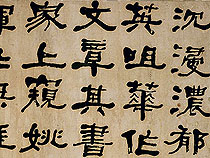 沈浸濃郁
英咀華作
文章其書
家上窺姚